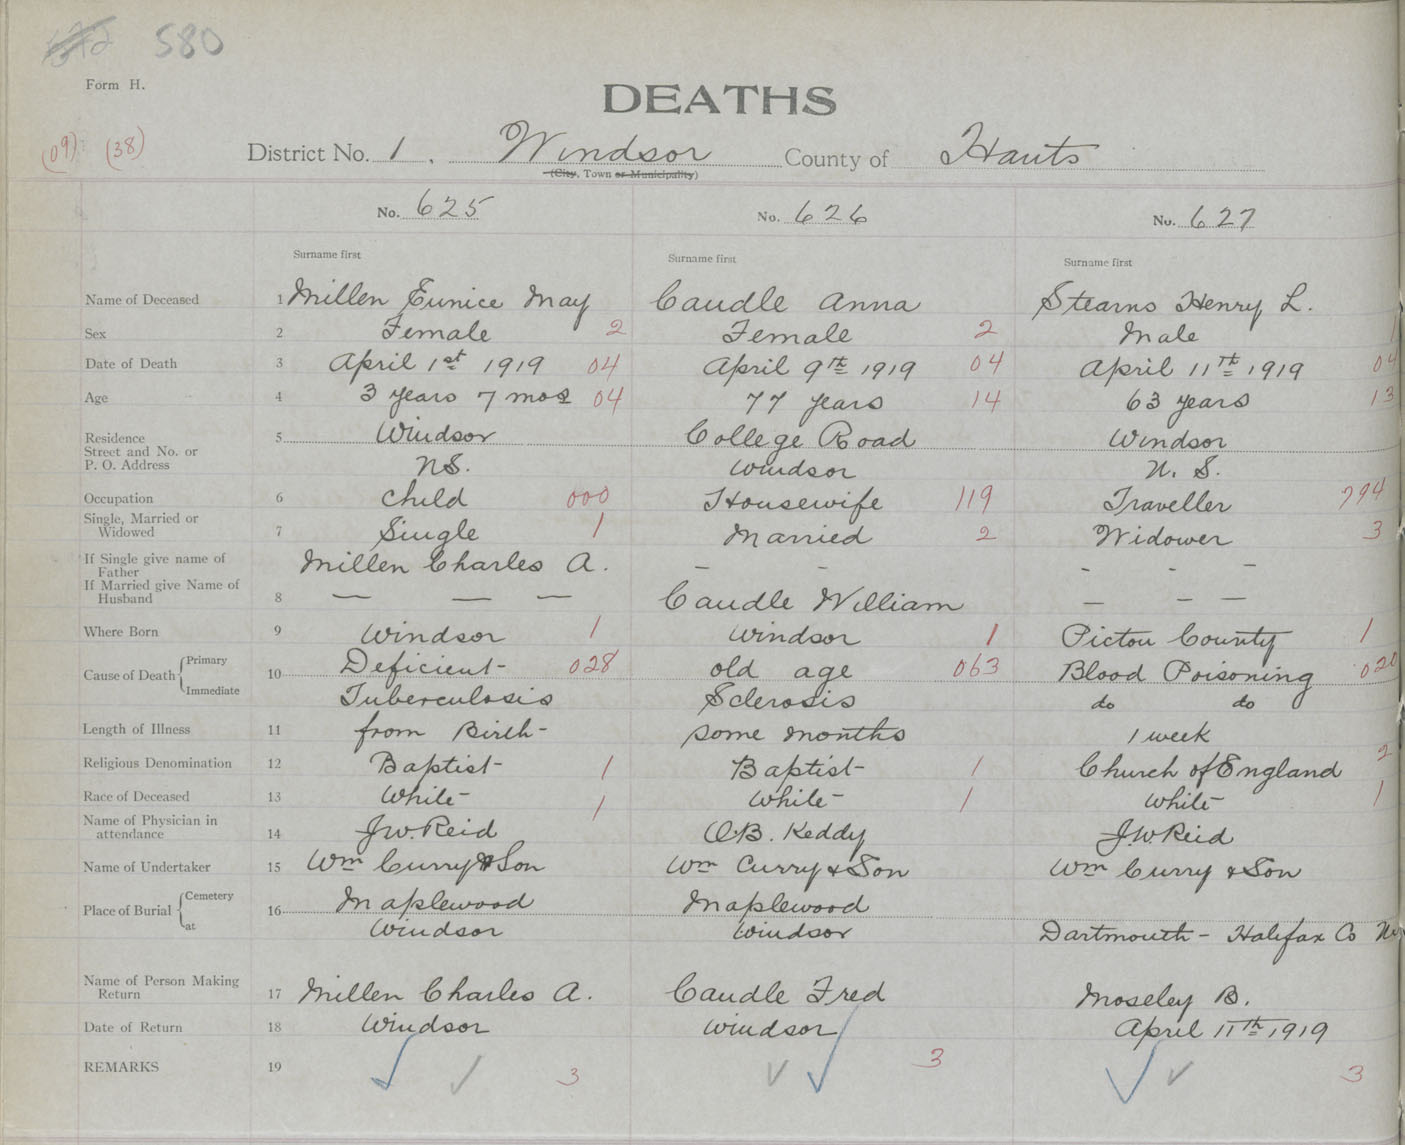 580
Form H.
DEATHS
(09) (38)
District No. 1, Windsor County of Hants
(City, Town or Municipality)
No. 625 No. 626 No. 627
Surname first Surname first Surname first
Name of Deceased 1 Millen Eunice May Caudle Anna Stearns Henry L.
Sex 2 Female 2 Female 2 Male 1
Date of Death 3 April 1st 1919 04 April 9th 1919 04 April 11th 1919 04
Age 4 3 years 7 mos 04 77 years 14 63 years 13
Residence 5 Windsor College Road Windsor
Street and No. or
P. O. Address N.S. Windsor N. S.
Occupation 6 child 000 Housewife 119 Traveller 794
Single, Married or
Widowed 7 Single 1 Married 2 Widower 3
If Single give name of
Father Millen Charles A. – – - - -
If Married give Name of
Husband 8 — — — Caudle William — — —
Where Born 9 Windsor 1 Windsor 1 Pictou County 1
Cause of Death Primary 10 Deficient 028 old age 063 Blood Poisoning 020
Immediate Tuberculosis Sclerosis do do
Length of Illness 11 from Birth- some months 1 week
Religious Denomination 12 Baptist 1 Baptist 1 Church of England 2
Race of Deceased 13 White 1 White 1 White 1
Name of Physician in
attendance 14 J.W. Reid O.B. Keddy J.W. Reid
Name of Undertaker 15 Wm Curry & Son Wm Curry & Son Wm Curry & Son
Place of Burial Cemetery 16 Maplewood Maplewood
at Windsor Windsor Dartmouth - Halifax Co
Name of Person Making
Return 17 Millen Charles A. Caudle Fred Moseley B.
Date of Return 18 Windsor Windsor April 11th 1919
REMARKS 19 3 3 3